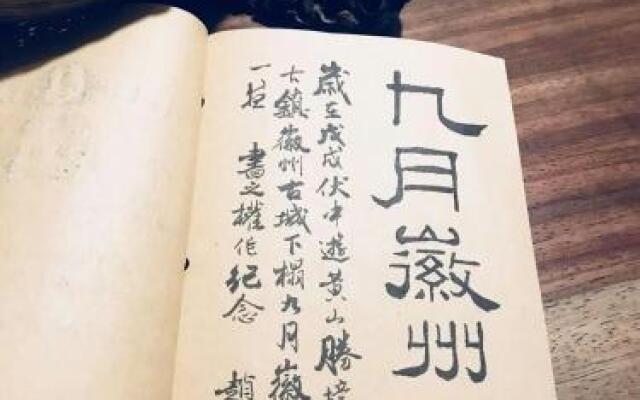 九月徽州
歲在戊戌伏中遊黃山勝境
古鎮徽州古城下榻九月徽
書之權作紀念 趙